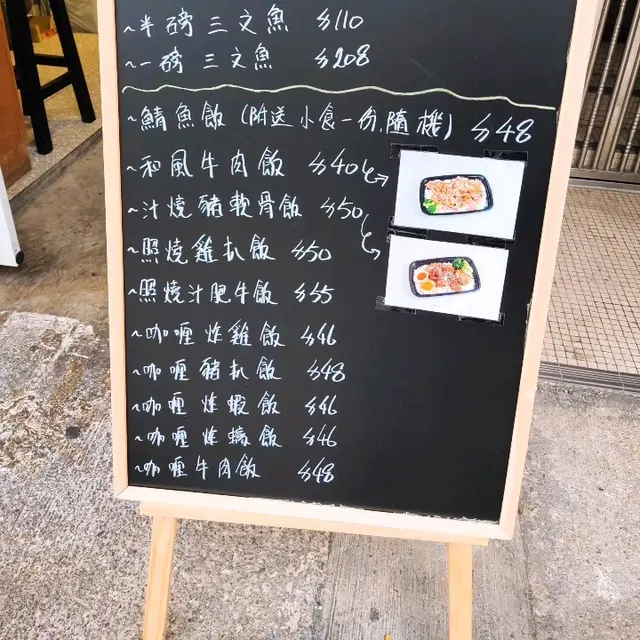 ~半磅三文魚 $110
~一磅三文魚 $208
~鯖魚飯（附送小食一份,隨機）$48
~和風牛肉飯 $40
~汁燒豬軟骨飯 $50
~照燒雞扒飯 $50
~照燒汁肥牛飯 $55
~咖喱炸雞飯 $46
~咖喱豬扒飯 $48
~咖喱炸蝦飯 $46
~咖喱炸蠔飯 $46
~咖喱牛肉飯 $48